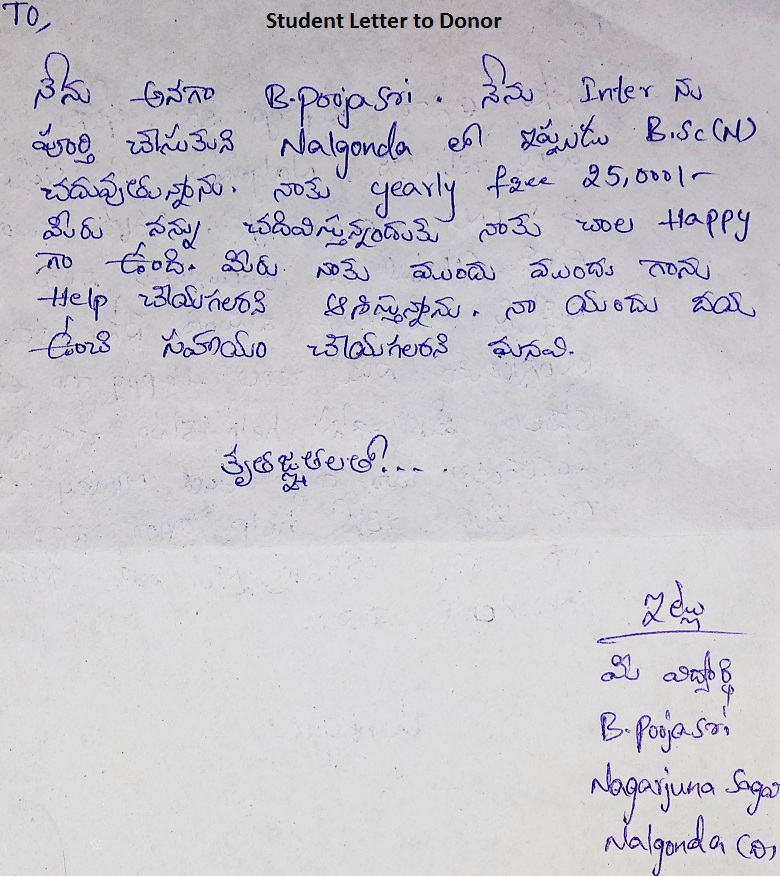 Student Letter to Donor
TO,
నేను అనగా B.Poojasri. నేను Inter ను
పూర్తి చేసుకుని Nalgonda లో ఇప్పుడు B.Sc(N)
చదువుతున్నాను. నాకు yearly feee 25,000/-
మీరు నన్ను చదివిస్తున్నందుకు నాకు చాల Happy
గా ఉంది. మీరు నాకు ముందు ముందు గాను
Help చేయగలరని ఆశిస్తున్నాను. నా యందు దయ
ఉంచి సహాయం చేయగలరని మనవి.
కృతజ్ఞతలతో.... .
ఇట్లు
మీ విద్యార్థి
B.Poojasri
Nagarjuna Sagar
Nalgonda (D)